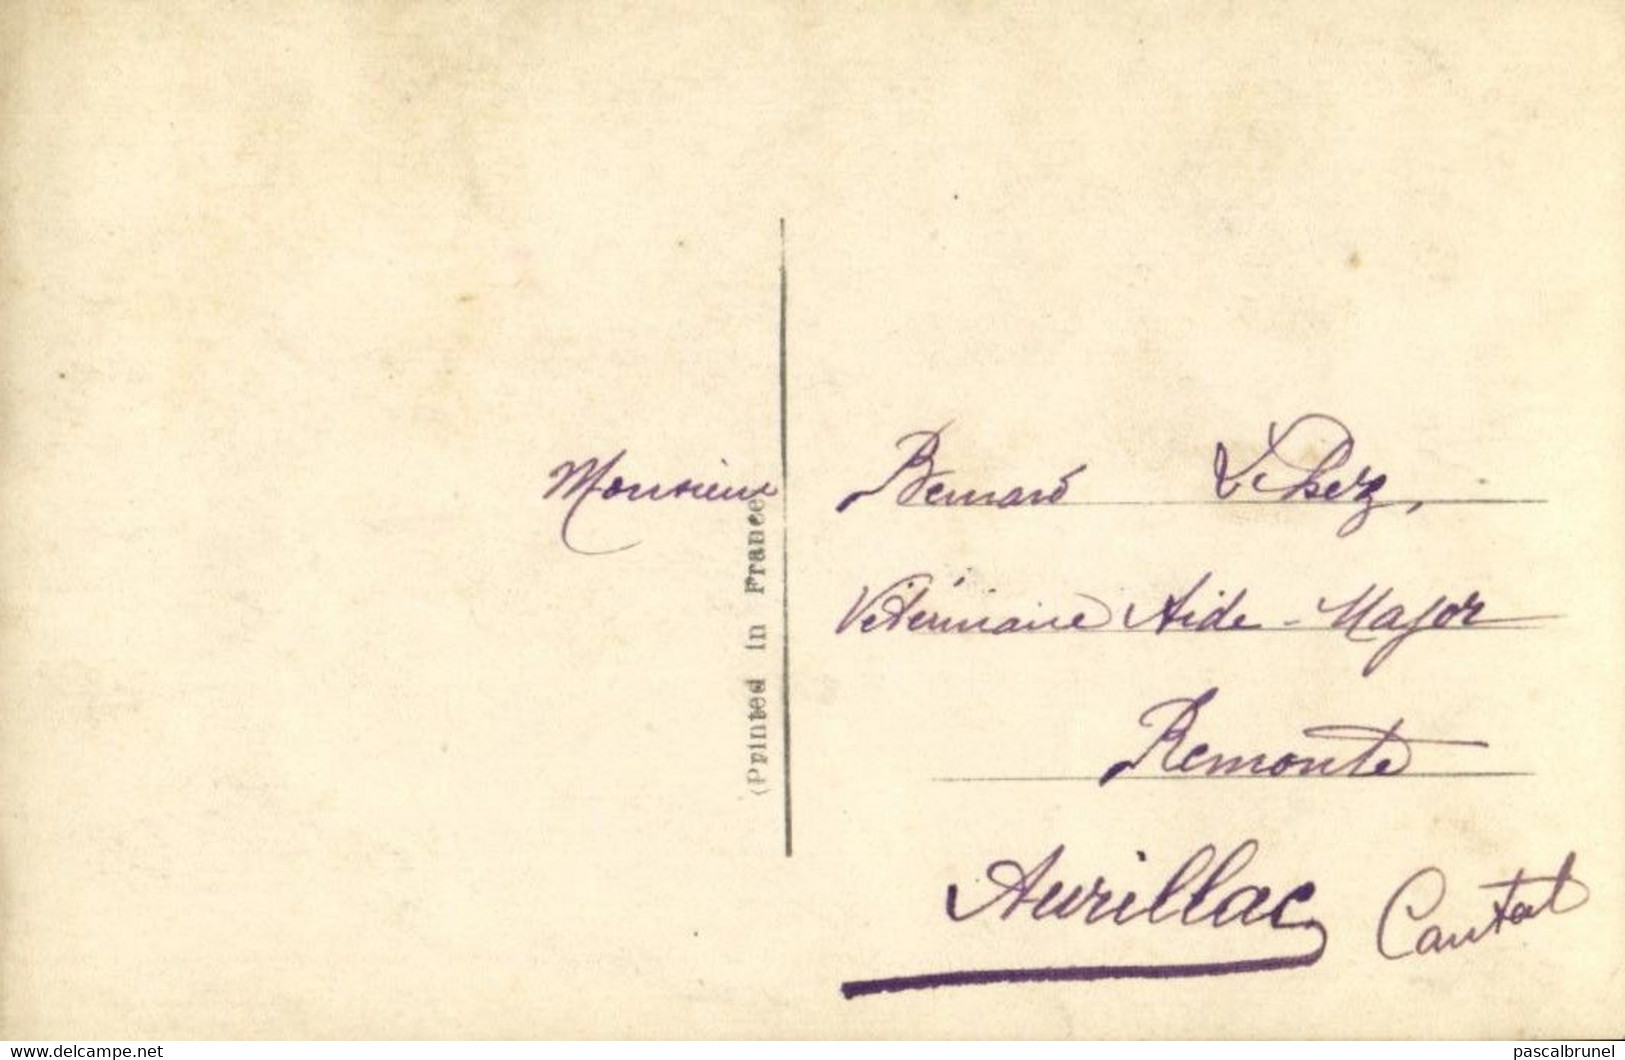 Monsieur Bernard
Vétérinaire Aide-Major
Remonte
Aurillac Cantal
(Printed in France)
www.delcampe.net
pascalbrunel